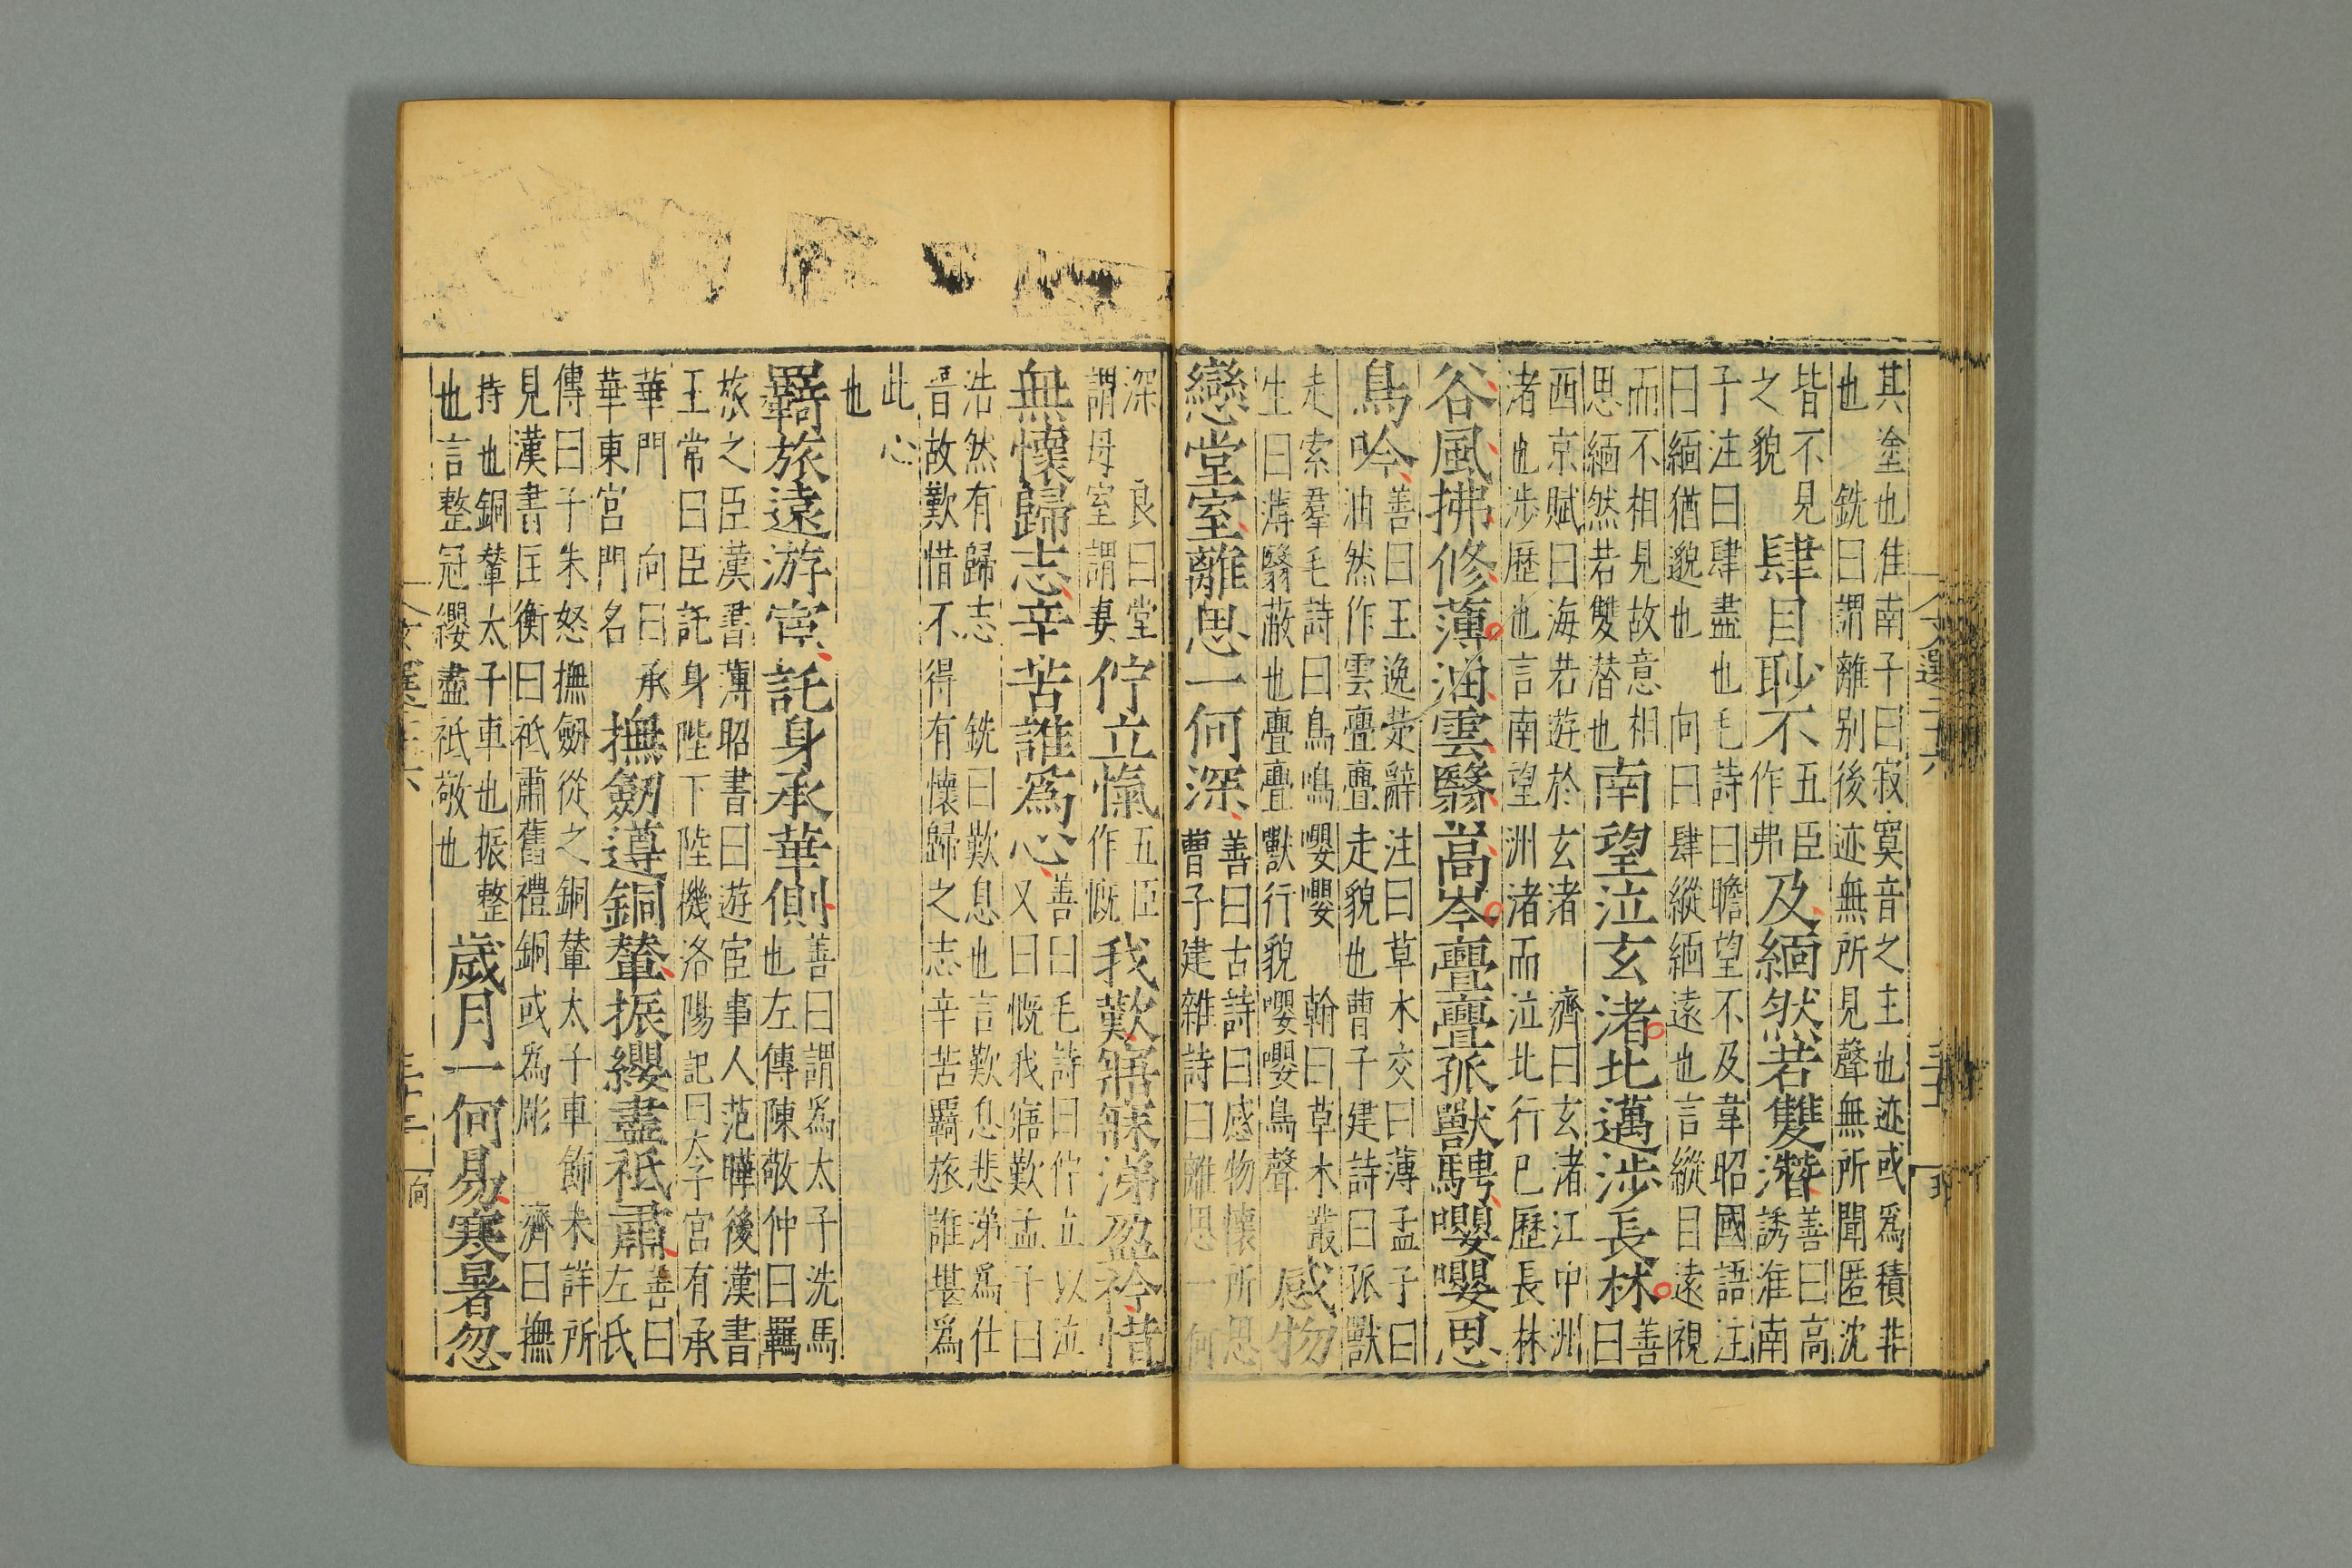 其塗也淮南子曰寂寞音之主也迹或爲積非
也　銑曰謂離别後迹無所見聲無所聞匿沈
皆不見
之貌
肆目眇不
五臣
作弗
及緬然若雙潛
善曰高
誘淮南
子注曰肆盡也毛詩曰瞻望不及韋昭國語注
曰緬猶邈也　向曰肆縱緬遠也言縱目遠視
而不相見故意相
思緬然若雙潛也
南望泣玄渚北邁涉長林
善
曰
西京賦曰海若遊於玄渚　濟曰玄渚江中洲
渚也涉歷也言南望洲渚而泣北行已歷長林
谷風拂修薄油雲翳高岑亹亹孤獸騁嚶嚶思
鳥吟
善曰王逸楚辭注曰草木交曰薄孟子曰
油然作雲亹亹走貌也曹子建詩曰孤獸
走索羣毛詩曰鳥鳴嚶嚶　翰曰草木叢
生曰薄翳蔽也亹亹獸行貌嚶嚶鳥聲
感物
戀堂室離思一何深
善曰古詩曰感物懷所思
曹子建雜詩曰離思一何
深　良曰堂
謂母室謂妻
佇立愾
五臣
作慨
我歎寤寐涕盈衿惜
無懷歸志辛苦誰爲心
善曰毛詩曰佇立以泣
又曰慨我寤歎孟子曰
浩然有歸志　銑曰歎息也言歎息悲涕爲仕
晋故歎惜不得有懷歸之志辛苦羇旅誰堪爲
此心
也
羇旅遠游宦託身承華側
善曰謂爲太子洗馬
也左傳陳敬仲曰羇
旅之臣漢書薄昭書曰遊宦事人范曄後漢書
王常曰臣託身陛下陸機洛陽記曰太子宮有承
華門　向曰承
華東宮門名
撫劒遵銅輦振纓盡祗肅
善曰
左氏
傳曰子朱怒撫劒從之銅輦太子車飾未詳所
見漢書匡衡曰祗肅舊禮銅或爲彫　濟曰撫
持也銅輦太子車也振整
也言整冠纓盡祗敬也
歲月一何易寒暑忽